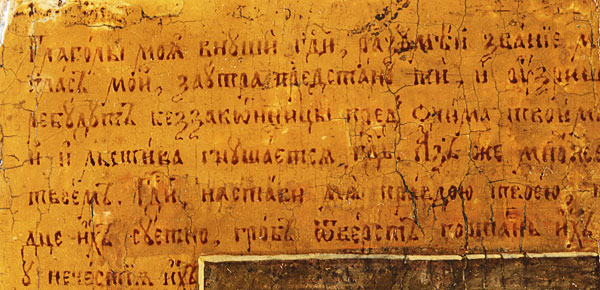 Глаголы моѧ̀ внꙋшѝ гдⷭ҇и, разꙋмѣ́й зва́нїе м
гласъ̀ мо́й, заꙋтра предстанꙋ ти, и ᲂу҆зри
беззаконницы пред ѻчима твоима
и льстива гнꙋшаетсѧ гдⷭ҇ь. Азъ же множе
твоемъ. Гдⷭ҇и, настави мѧ правдою твоею,
дце ихъ сꙋетно, гробъ ѿверстъ гортань ихъ
нечестїѧ ихъ